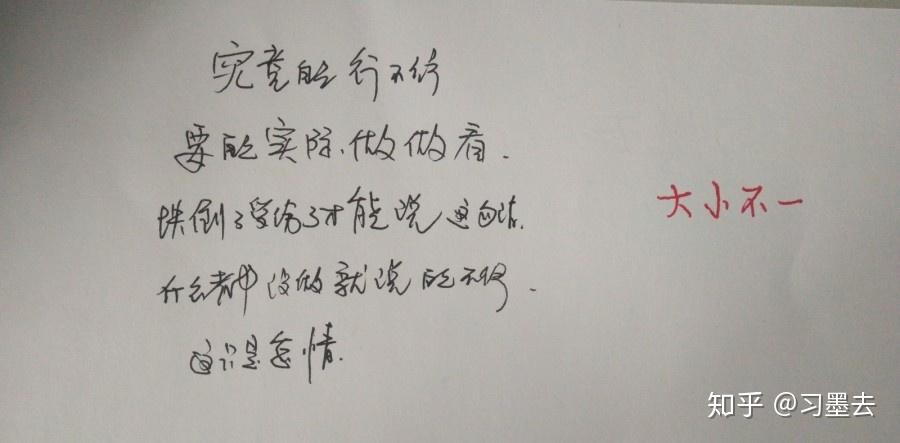 究竟能行不行
要能实际、做做看.
跌倒了受伤了才能说这句话.
什么都没做就说能不行.
这只是怠惰.
大小不一
知乎 @习墨去